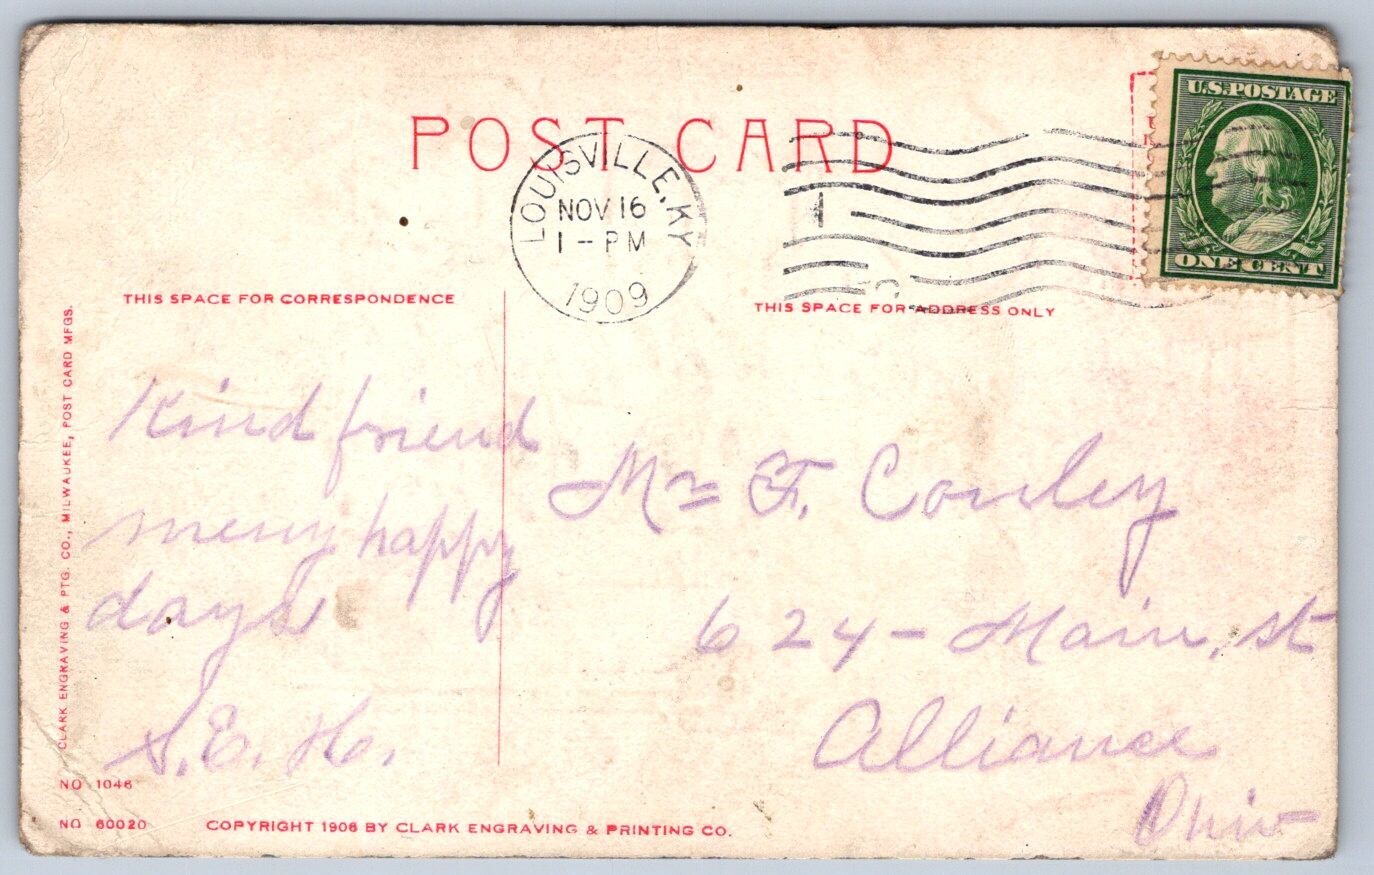 POST CARD
LOUISVILLE, KY
NOV 16
1 - PM
1909
U.S. POSTAGE
ONE CENT
THIS SPACE FOR CORRESPONDENCE
THIS SPACE FOR ADDRESS ONLY
Kind friend
meny happy
days
S. E. H.
Mr F. Conley
624 - Main, st
Alliance
Ohio
CLARK ENGRAVING & PTG. CO., MILWAUKEE, POST CARD MFGS.
NO 1046
NO 60020
COPYRIGHT 1906 BY CLARK ENGRAVING & PRINTING CO.